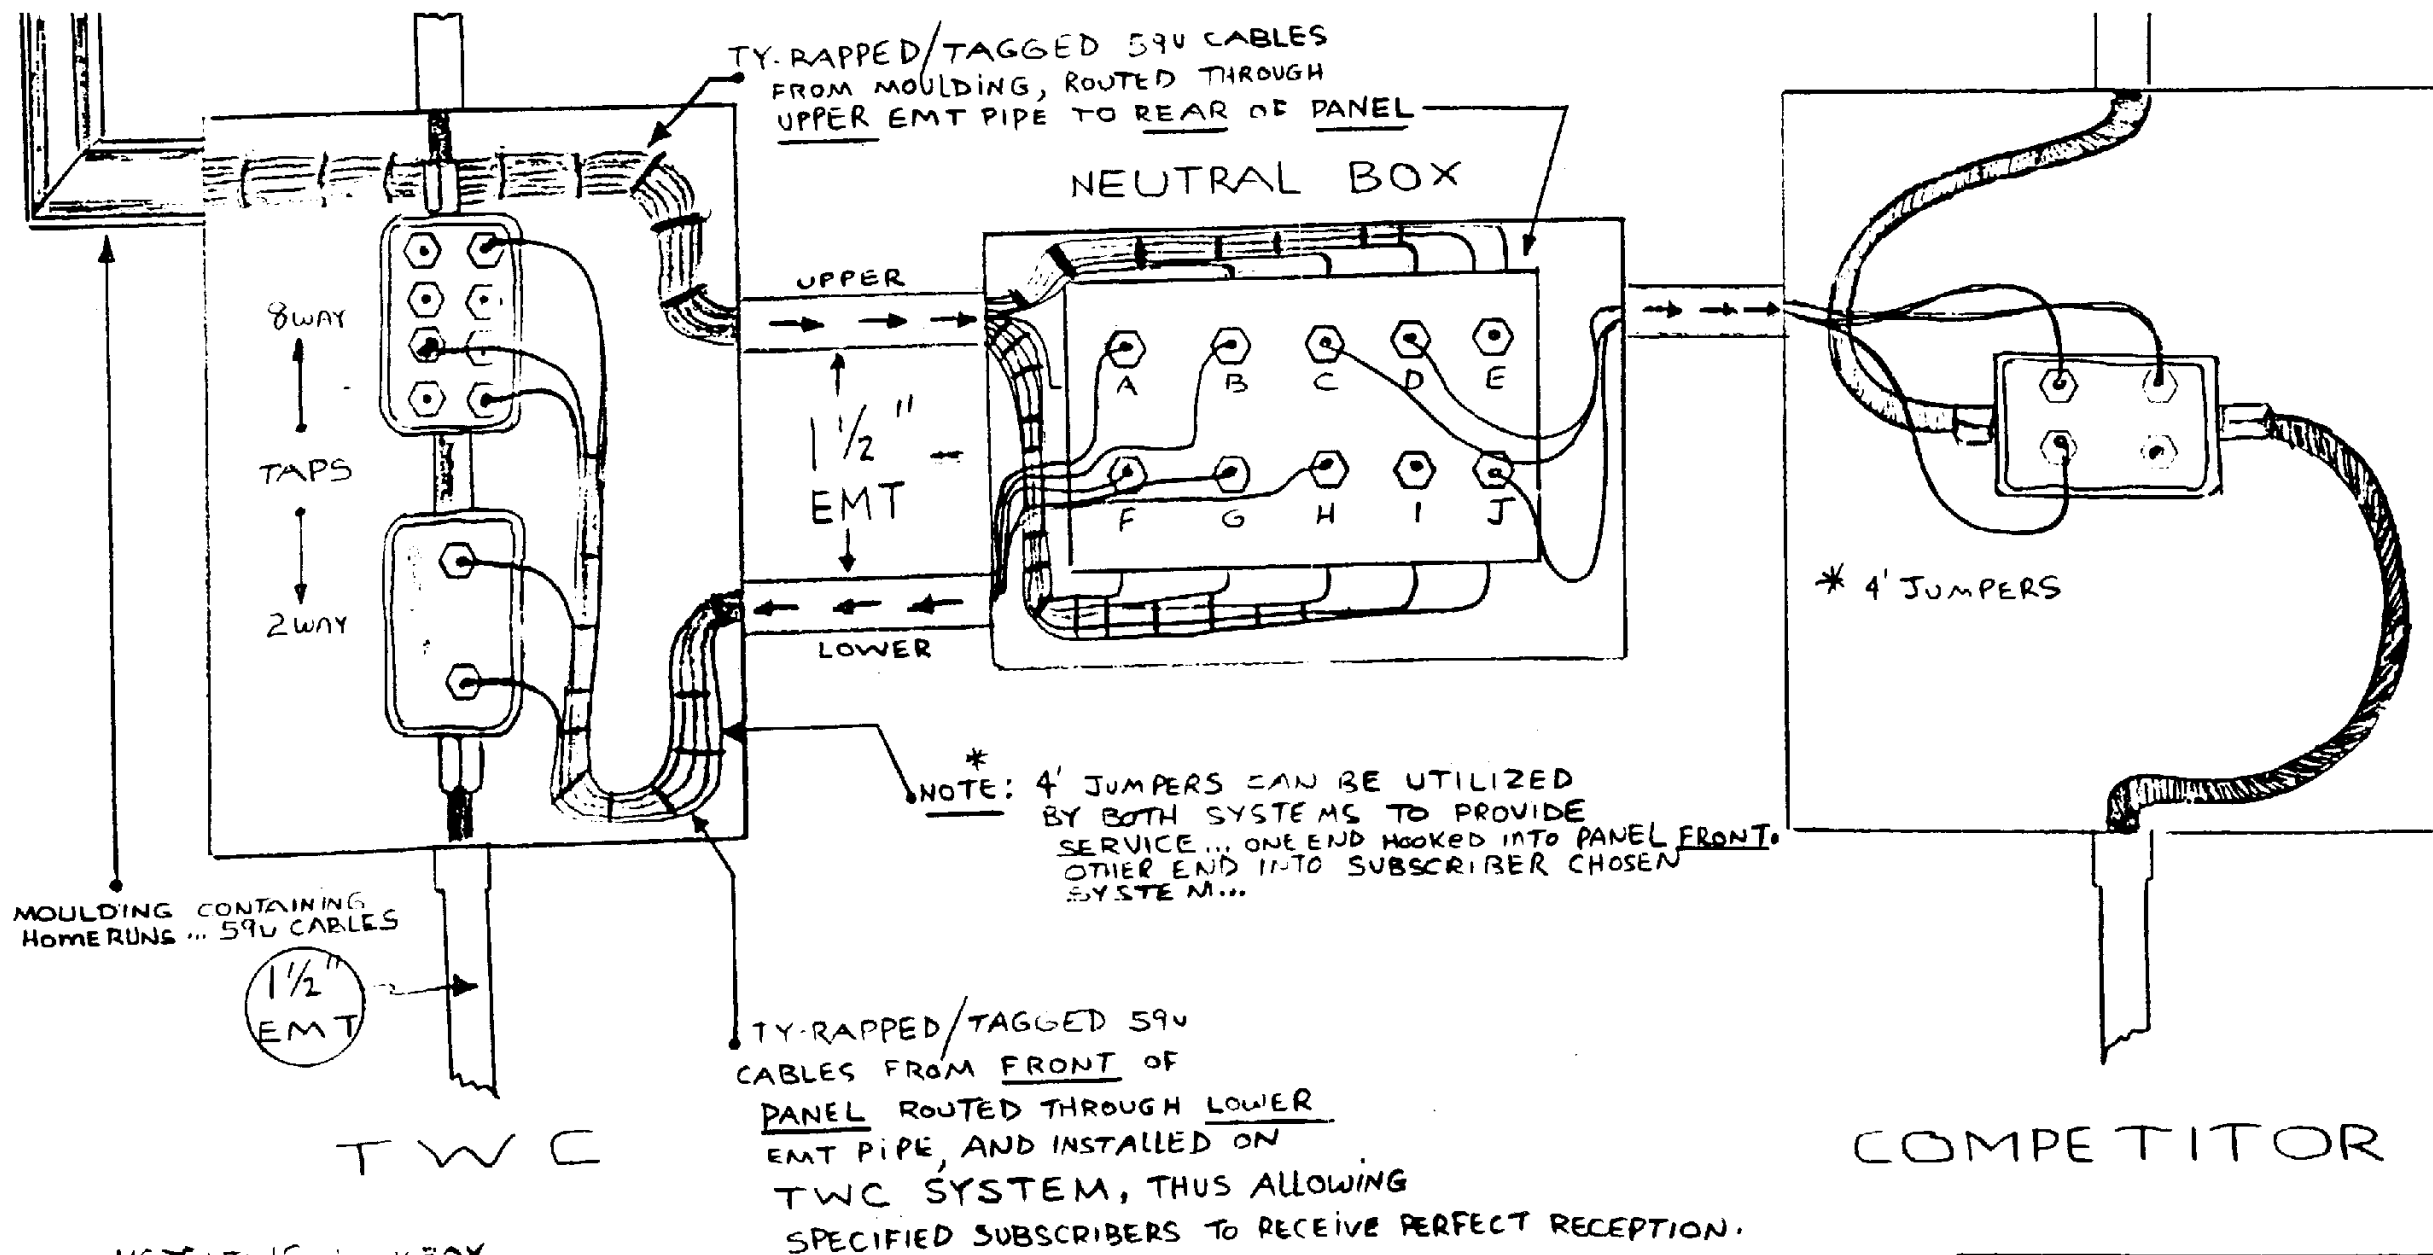 TY-RAPPED/TAGGED 59U CABLES
FROM MOULDING, ROUTED THROUGH
UPPER EMT PIPE TO REAR OF PANEL
NEUTRAL BOX
UPPER
8WAY
TAPS
2WAY
1 1/2"
EMT
LOWER
A B C D E
F G H I J
* 4' JUMPERS
*
NOTE: 4' JUMPERS CAN BE UTILIZED
BY BOTH SYSTEMS TO PROVIDE
SERVICE... ONE END HOOKED INTO PANEL FRONT.
OTHER END INTO SUBSCRIBER CHOSEN
SYSTEM...
MOULDING CONTAINING
HOMERUNS ... 59U CABLES
1 1/2"
EMT
TY-RAPPED/TAGGED 59U
CABLES FROM FRONT OF
PANEL ROUTED THROUGH LOWER
EMT PIPE, AND INSTALLED ON
TWC SYSTEM, THUS ALLOWING
SPECIFIED SUBSCRIBERS TO RECEIVE PERFECT RECEPTION.
TWC
COMPETITOR